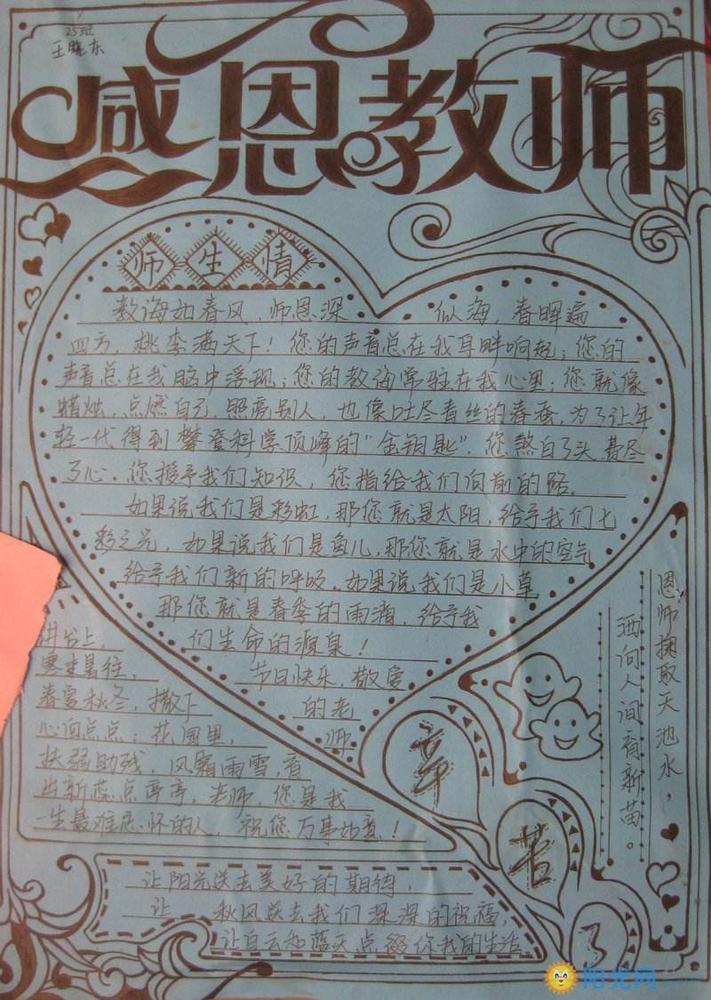 25班
王晓东
感恩教师
师生情
教海如春风，师恩深似海，春晖遍
四方，桃李满天下！您的声音总在我耳畔响起；您的
声音总在我脑中浮现；您的教诲常驻在我心里；您就像
蜡烛，点燃自己，照亮别人，也像吐尽青丝的春蚕，为了让年
轻一代得到攀登科学顶峰的“金钥匙”，您熬白了头，费尽
了心。您授予我们知识，您指给我们向前的路。
如果说我们是彩虹，那您就是太阳，给予我们七
彩之光，如果说我们是鱼儿，那您就是水中的空气
给予我们新的呼吸，如果说我们是小草
那您就是春季的雨滴，给予我
们生命的源泉！
节日快乐，敬爱
的老
师
讲台上，
寒来暑往，
春夏秋冬，撒下
心血点点；花园里，
扶弱助残，风霜雨雪，育
出新蕊点亭亭，老师，您是我
一生最难忘怀的人，祝您万事如意！
恩师掬取天池水，
洒向人间育新苗。
辛
苦
了
让阳光送去美好的期待，
让秋风送去我们深深的祝福，
让白云和蓝天点缀你我的生活
阳光网